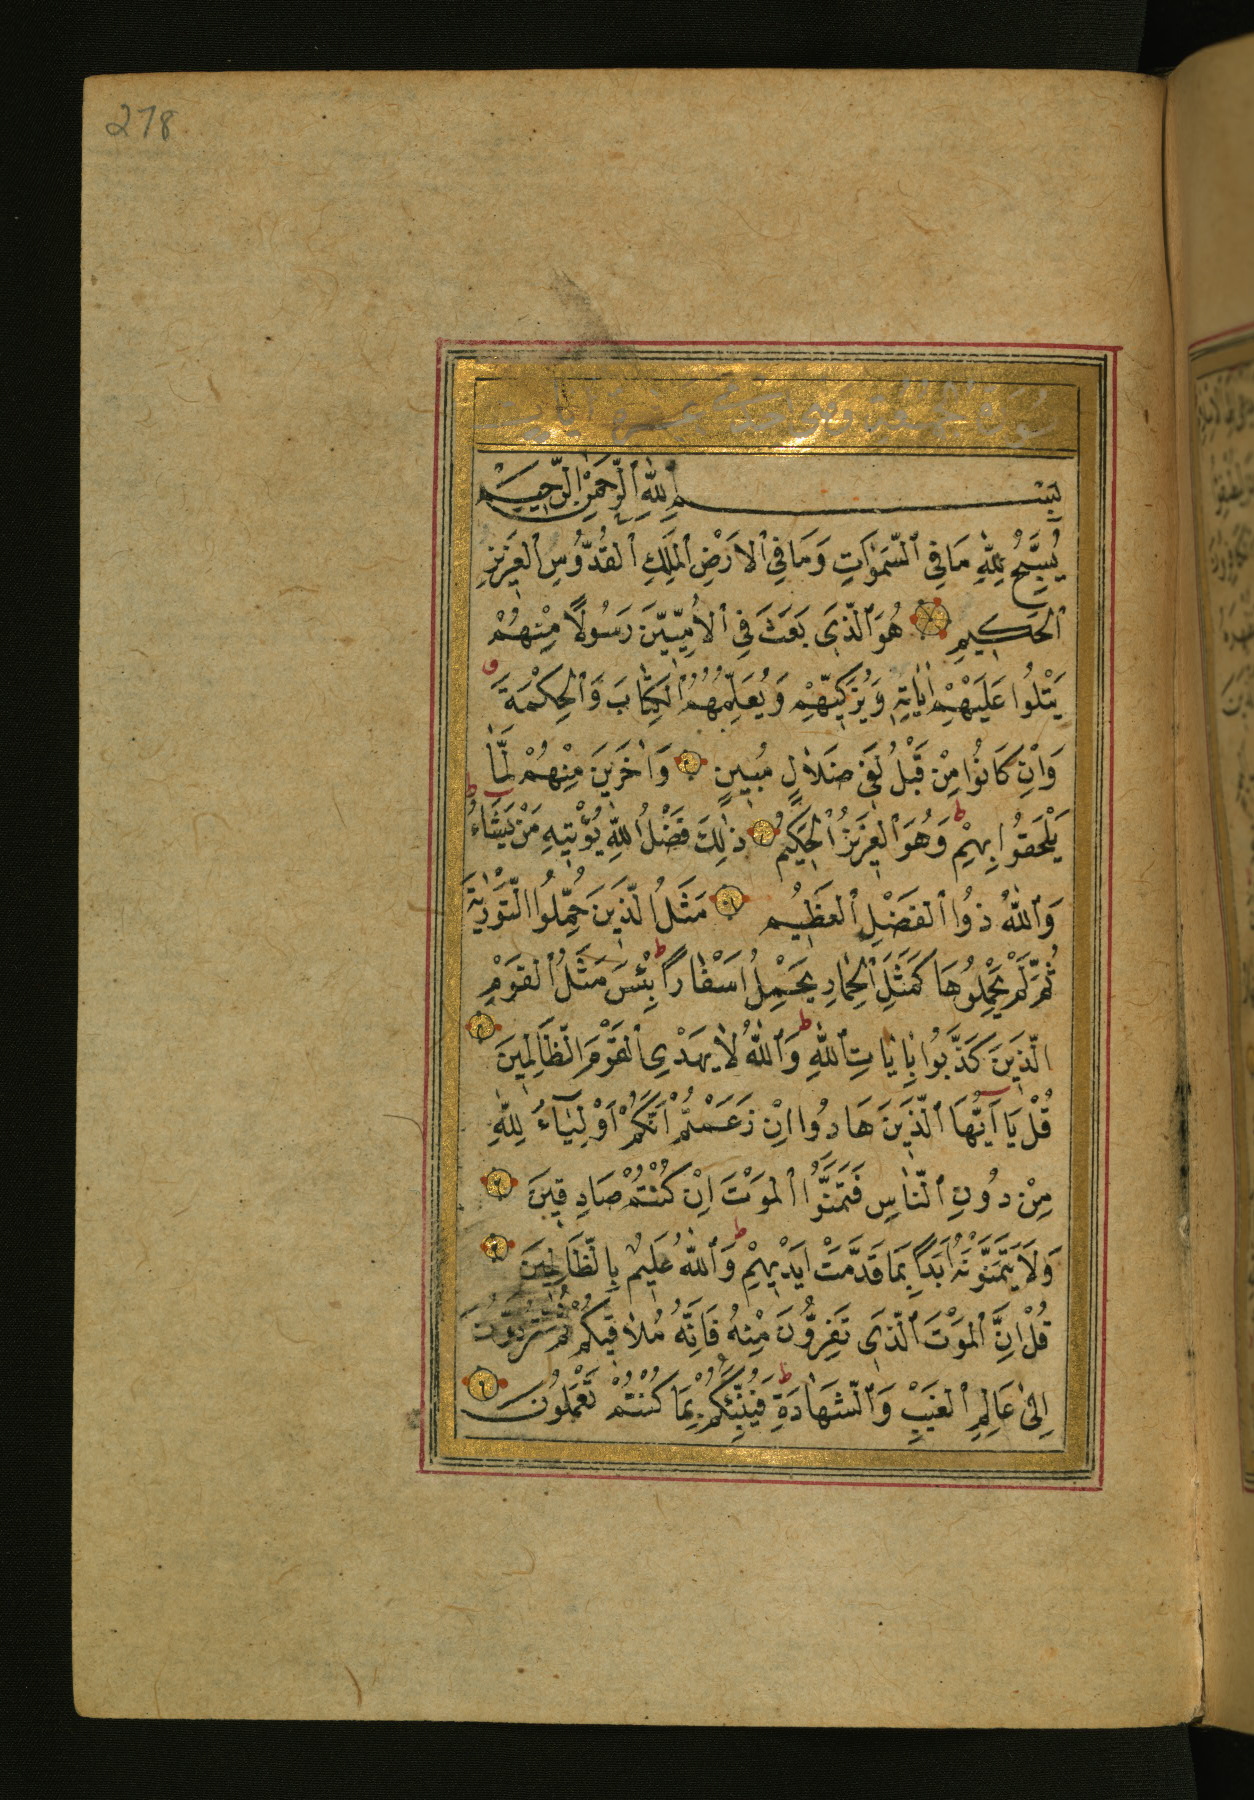 278
سُورَةُ الْجُمُعَةِ وَهِيَ اِحْدٰى عَشْرَةَ اٰيَات
بِسْمِ اللّٰهِ الرَّحْمٰنِ الرَّحِيمِ
يُسَبِّحُ لِلّٰهِ مَا فِى السَّمٰوَاتِ وَمَا فِى الْاَرْضِ الْمَلِكِ الْقُدُّوسِ الْعَزِيزِ
الْحَكِيمِ هُوَ الَّذِى بَعَثَ فِى الْاُمِّيِّينَ رَسُولًا مِنْهُمْ
يَتْلُوا عَلَيْهِمْ اٰيَاتِهِ وَيُزَكِّيهِمْ وَيُعَلِّمُهُمُ الْكِتَابَ وَالْحِكْمَةَ
وَاِنْ كَانُوا مِنْ قَبْلُ لَفِى ضَلَالٍ مُبِينٍ وَاٰخَرِينَ مِنْهُمْ لَمَّا
يَلْحَقُوا بِهِمْ وَهُوَ الْعَزِيزُ الْحَكِيمُ ذٰلِكَ فَضْلُ اللّٰهِ يُؤْتِيهِ مَنْ يَشَاءُ
وَاللّٰهُ ذُوا الْفَضْلِ الْعَظِيمِ مَثَلُ الَّذِينَ حُمِّلُوا التَّوْرٰيةَ
ثُمَّ لَمْ يَحْمِلُوهَا كَمَثَلِ الْحِمَارِ يَحْمِلُ اَسْفَارًا بِئْسَ مَثَلُ الْقَوْمِ
الَّذِينَ كَذَّبُوا بِاٰيَاتِ اللّٰهِ وَاللّٰهُ لَا يَهْدِى الْقَوْمَ الظَّالِمِينَ
قُلْ يَا اَيُّهَا الَّذِينَ هَادُوا اِنْ زَعَمْتُمْ اَنَّكُمْ اَوْلِيَاءُ لِلّٰهِ
مِنْ دُونِ النَّاسِ فَتَمَنَّوُا الْمَوْتَ اِنْ كُنْتُمْ صَادِقِينَ
وَلَا يَتَمَنَّوْنَهُ اَبَدًا بِمَا قَدَّمَتْ اَيْدِيهِمْ وَاللّٰهُ عَلِيمٌ بِالظَّالِمِينَ
قُلْ اِنَّ الْمَوْتَ الَّذِى تَفِرُّونَ مِنْهُ فَاِنَّهُ مُلَاقِيكُمْ ثُمَّ تُرَدُّونَ
اِلٰى عَالِمِ الْغَيْبِ وَالشَّهَادَةِ فَيُنَبِّئُكُمْ بِمَا كُنْتُمْ تَعْمَلُونَ